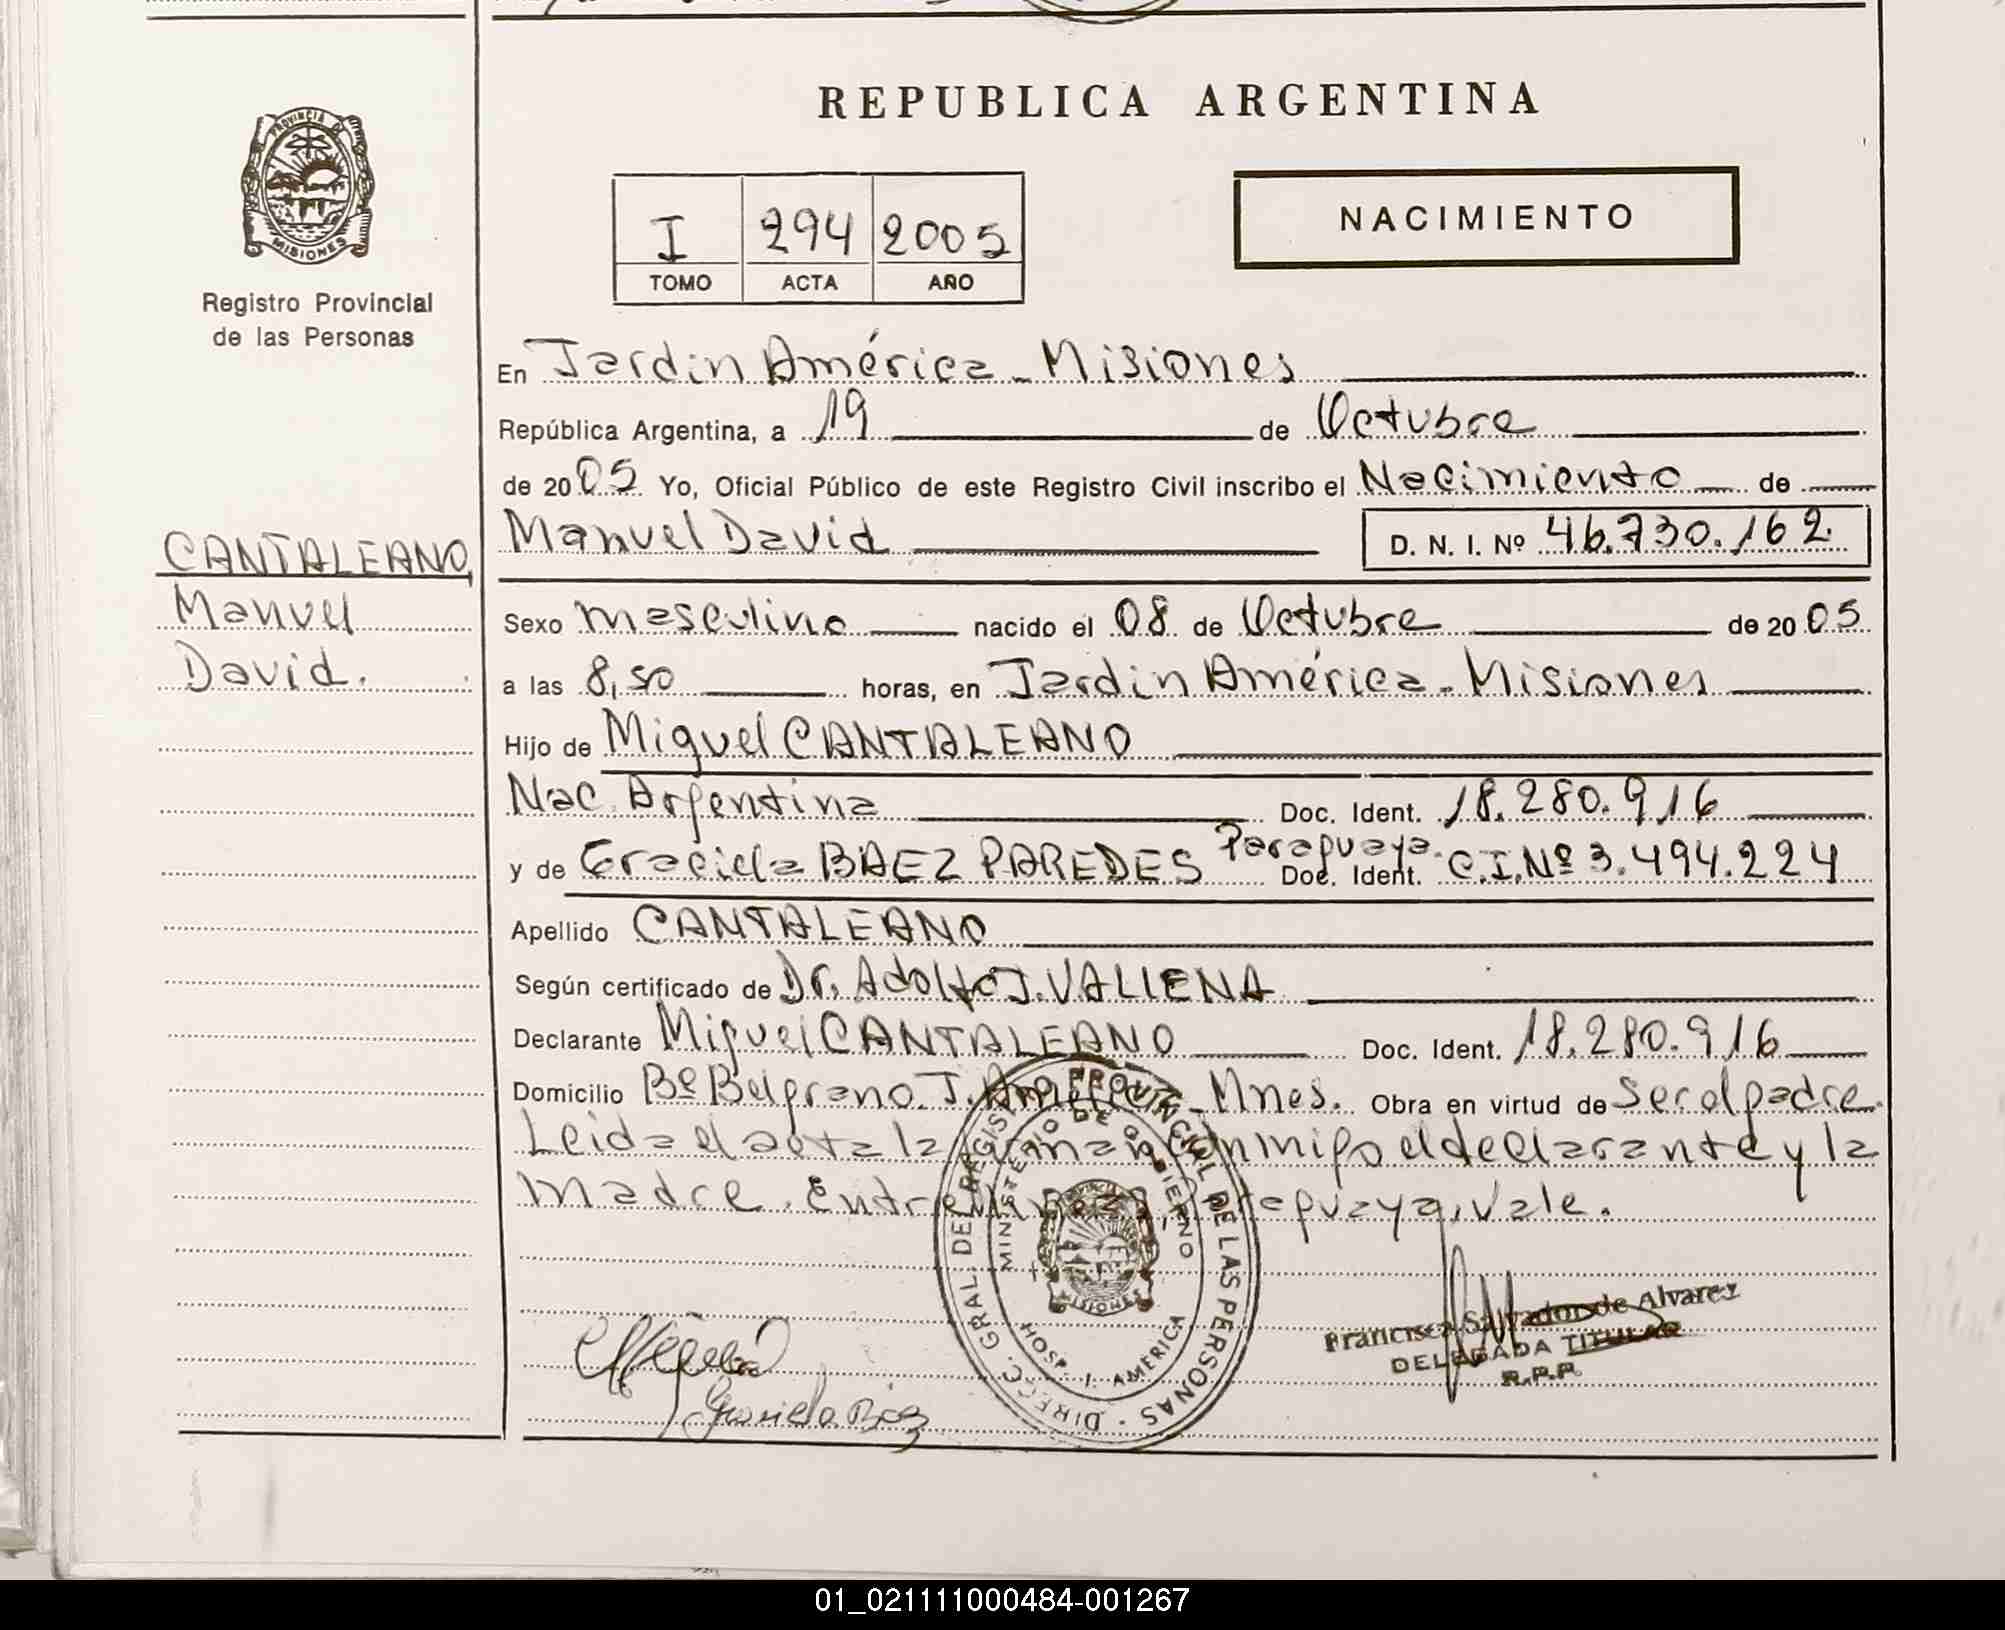 REPUBLICA ARGENTINA
PROVINCIA DE
MISIONES
Registro Provincial
de las Personas
I 294 2005
TOMO ACTA AÑO
NACIMIENTO
En Jardin América - Misiones
República Argentina, a 19 de Octubre
de 2005 Yo, Oficial Público de este Registro Civil inscribo el Nacimiento de
Manuel David D. N. I. Nº 46.730.162
CANTALEANO,
Manuel
David.
Sexo masculino nacido el 08 de Octubre de 2005
a las 8,50 horas, en Jardin América - Misiones
Hijo de Miguel CANTALEANO
Nac. Argentina Doc. Ident. 18.280.916
Paraguaya.
y de Graciela BAEZ PAREDES Doc. Ident. C.I.Nº 3.494.224
Apellido CANTALEANO
Según certificado de Dr. Adolfo J. VALLENA
Declarante Miguel CANTALEANO Doc. Ident. 18.280.916
Domicilio Bº Belgrano. J. América - Mnes. Obra en virtud de ser el padre.
Leida el acta la firman conmigo el declarante y la
madre. Entre lineas, Paraguaya, Vale.
DIRECC. GRAL. DEL REGISTRO PROVINCIAL DE LAS PERSONAS
MINISTERIO DE GOBIERNO
MISIONES
HOSP. J. AMERICA
Graciela Baez
Francisca Salvador de Alvarez
DELEGADA TITULAR
R.P.P.
01_021111000484-001267